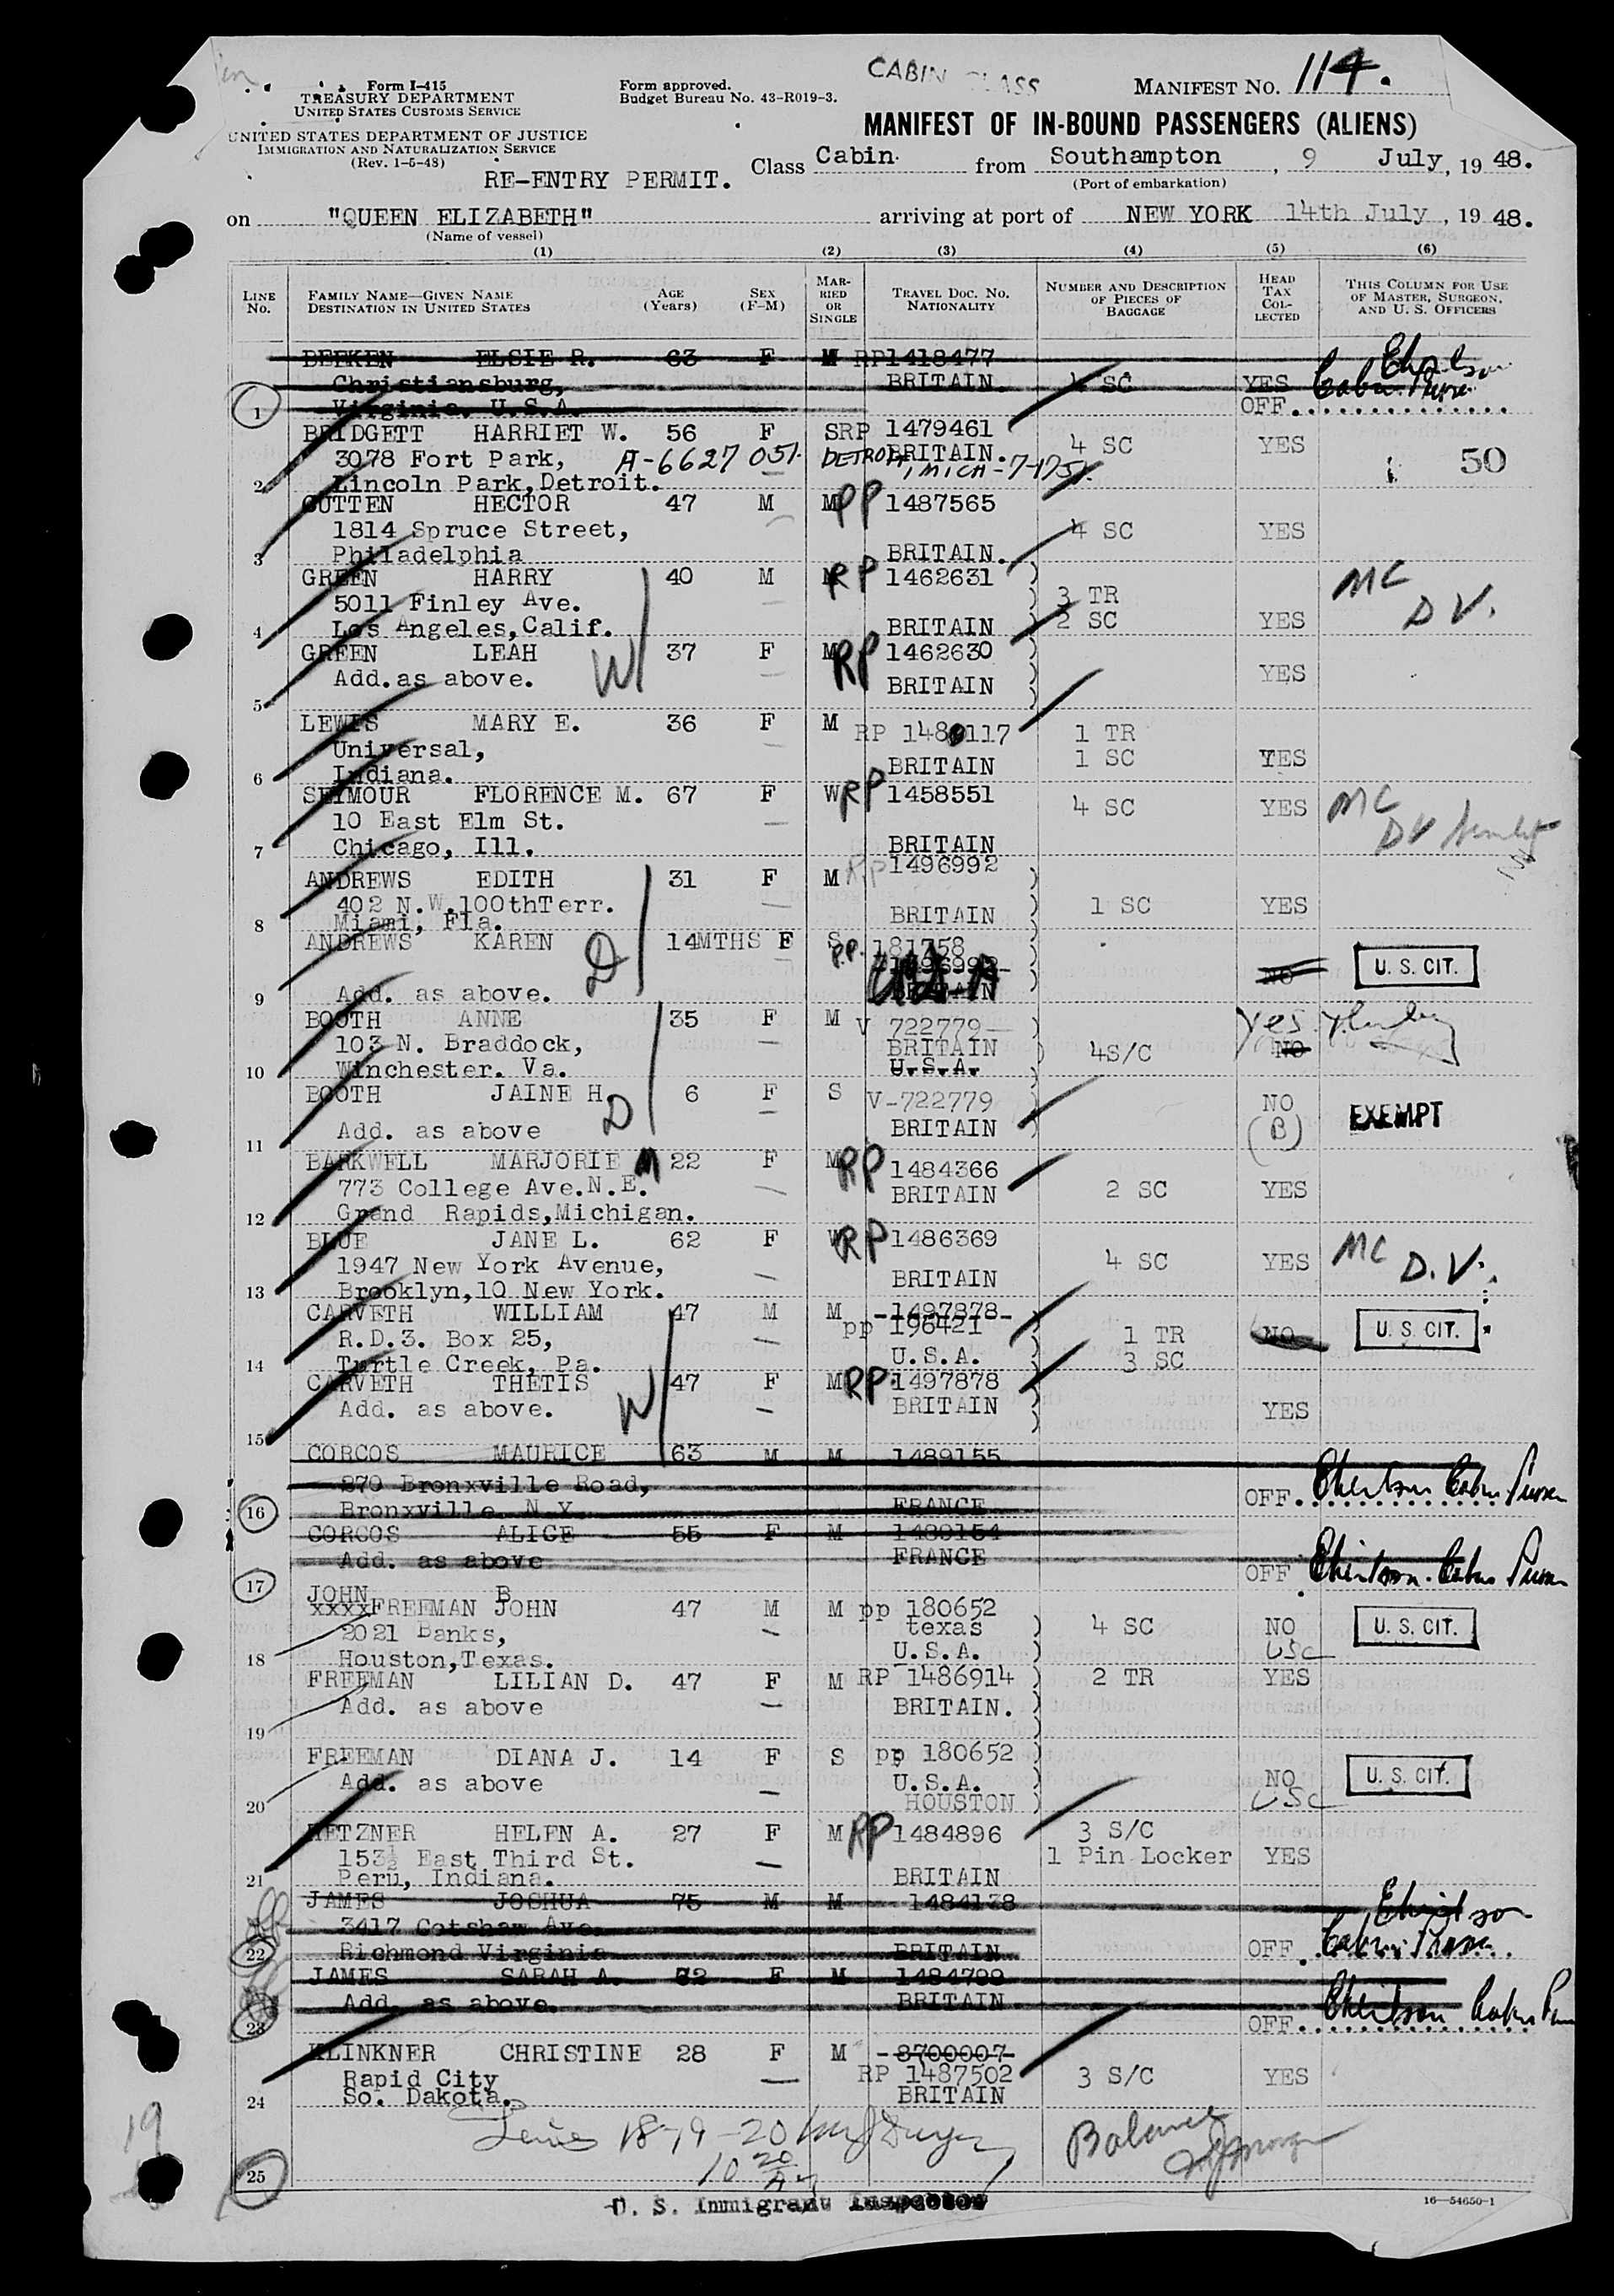 CABIN CLASS
Form I-415
TREASURY DEPARTMENT
UNITED STATES CUSTOMS SERVICE
UNITED STATES DEPARTMENT OF JUSTICE
IMMIGRATION AND NATURALIZATION SERVICE
(Rev. 1-5-48)
Form approved.
Budget Bureau No. 43-R019-3.
MANIFEST NO. 114.
MANIFEST OF IN-BOUND PASSENGERS (ALIENS)
RE-ENTRY PERMIT.
Class Cabin. from Southampton, 9 July, 1948.
(Port of embarkation)
on "QUEEN ELIZABETH" arriving at port of NEW YORK 14th July, 1948.
(Name of vessel)
(1) (2) (3) (4) (5) (6)
LINE No.
FAMILY NAME—GIVEN NAME
DESTINATION IN UNITED STATES
AGE (Years)
SEX (F-M)
MARRIED OR SINGLE
TRAVEL DOC. NO. NATIONALITY
NUMBER AND DESCRIPTION OF PIECES OF BAGGAGE
HEAD TAX COLLECTED
THIS COLUMN FOR USE OF MASTER, SURGEON, AND U. S. OFFICERS
ELSIE R. 63 F M RP1418477
Christiansburg, BRITAIN. 4 SC YES
1 Virginia. U.S.A. OFF.
BRIDGETT HARRIET W. 56 F SRP 1479461
3078 Fort Park, A-6627 051. DETROIT, MICH-7-1751. BRITAIN. 4 SC YES 50
2 Lincoln Park,Detroit.
GUTTEN HECTOR 47 M M PP 1487565
1814 Spruce Street, 4 SC YES
3 Philadelphia BRITAIN.
GREEN HARRY 40 M M RP 1462631 MC
5011 Finley Ave. 3 TR D V.
4 Los Angeles,Calif. BRITAIN 2 SC YES
GREEN LEAH W 37 F M RP 1462630
5 Add.as above. BRITAIN YES
LEWIS MARY E. 36 F M RP 148 117 1 TR
Universal, 1 SC YES
6 Indiana. BRITAIN
SEYMOUR FLORENCE M. 67 F W RP 1458551 4 SC YES MC
10 East Elm St. DV
7 Chicago, Ill. BRITAIN
ANDREWS EDITH 31 F M RP 1496992
402 N.W.100thTerr. BRITAIN 1 SC YES
8 Miami, Fla.
ANDREWS KAREN D 14MTHS F S P.P. 181758
1496992 NO U. S. CIT.
9 Add. as above. BRITAIN
BOOTH ANNE 35 F M V 722779 Yes
103 N. Braddock, BRITAIN 4S/C NO
10 Winchester. Va. U.S.A.
BOOTH JAINE H. D 6 F S V-722779 NO EXEMPT
11 Add. as above BRITAIN (B)
BARKWELL MARJORIE M 22 F M RP 1484366
773 College Ave.N.E. BRITAIN 2 SC YES
12 Grand Rapids,Michigan.
BLUE JANE L. 62 F W RP 1486369 MC
1947 New York Avenue, 4 SC YES D.V.
13 Brooklyn,10 New York. BRITAIN
CARVETH WILLIAM 47 M M -1497878-
R.D.3. Box 25, pp 196421 1 TR NO U. S. CIT.
14 Turtle Creek, Pa. U.S.A. 3 SC
CARVETH THETIS W 47 F M RP 1497878
15 Add. as above. BRITAIN YES
CORCOS MAURICE 63 M M 1489155
270 Bronxville Road,
16 Bronxville N.Y. FRANCE OFF.
CORCOS ALICE 55 F M 1489154
Add. as above FRANCE
17 OFF
JOHN B
xxxxFREEMAN JOHN 47 M M pp 180652
2021 Banks, texas 4 SC NO U. S. CIT.
18 Houston,Texas. U.S.A. USC
FREEMAN LILIAN D. 47 F M RP 1486914 2 TR YES
19 Add. as above BRITAIN.
FREEMAN DIANA J. 14 F S pp 180652
Add. as above U.S.A. NO U. S. CIT.
20 HOUSTON USC
HETZNER HELEN A. 27 F M RP 1484896 3 S/C
153½ East Third St. 1 Pin Locker YES
21 Peru, Indiana. BRITAIN
JAMES JOSHUA 75 M M 1484138
3417 Cotshaw Ave.
22 Richmond Virginia BRITAIN OFF
JAMES SARAH A. 72 F M 1484799
Add. as above. BRITAIN
23 OFF.
KLINKNER CHRISTINE 28 F M -8700007-
Rapid City RP 1487502 3 S/C YES
24 So. Dakota. BRITAIN
18-19-20 Balance
25
19
U. S. Immigrant Inspector
16—54650-1